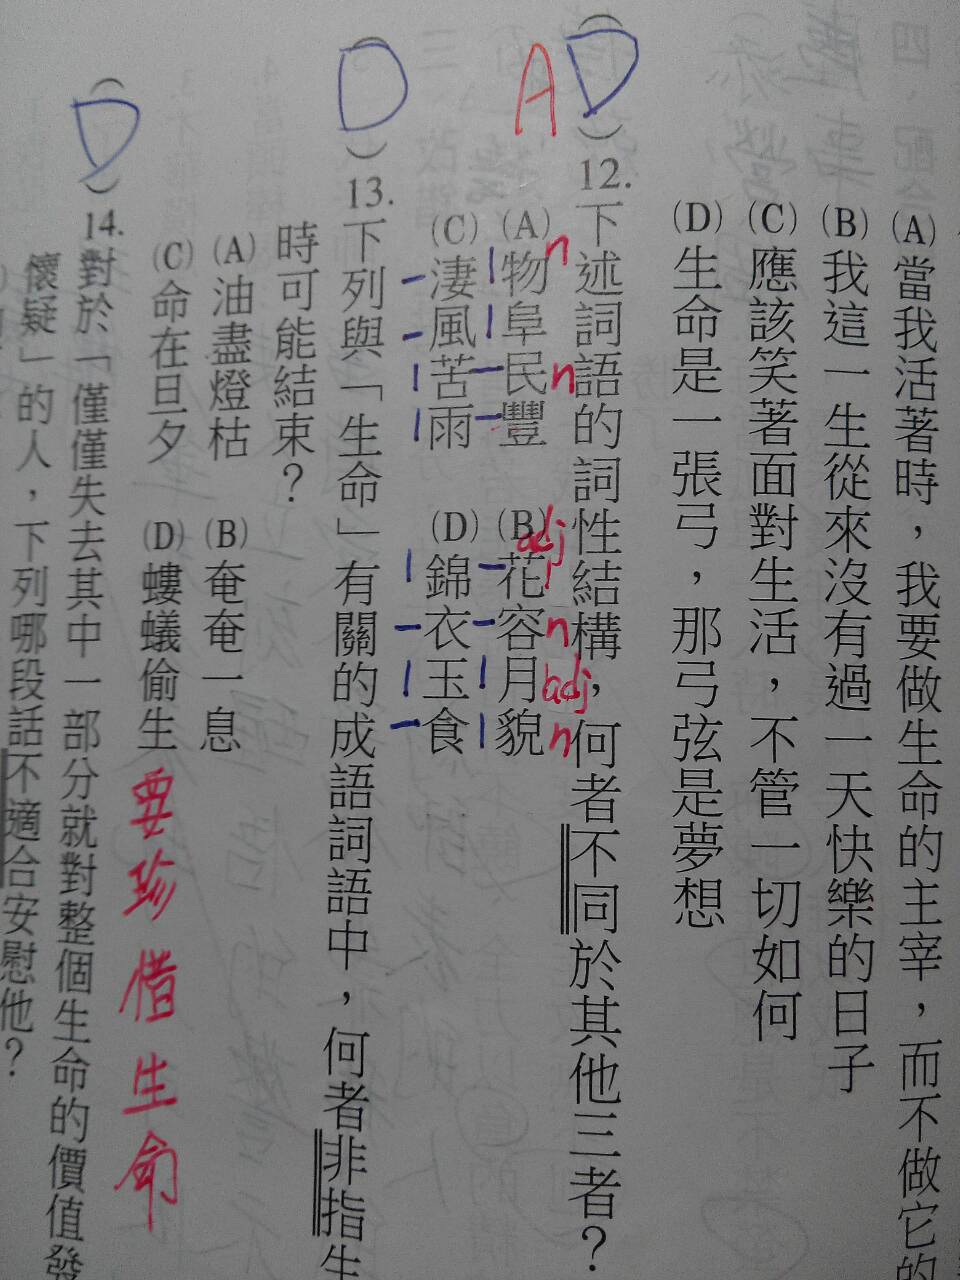 (A)當我活著時，我要做生命的主宰，而不做它的
(B)我這一生從來沒有過一天快樂的日子
(C)應該笑著面對生活，不管一切如何
(D)生命是一張弓，那弓弦是夢想
(D) A 12.下述詞語的詞性結構，何者不同於其他三者？
(A)物阜民豐 (B)花容月貌
n n adj n adj n
(C)淒風苦雨 (D)錦衣玉食
(D) 13.下列與「生命」有關的成語詞語中，何者非指生
時可能結束？
(A)油盡燈枯 (B)奄奄一息
(C)命在旦夕 (D)螻蟻偷生
要珍惜生命
(D) 14.對於「僅僅失去其中一部分就對整個生命的價值發
懷疑」的人，下列哪段話不適合安慰他？